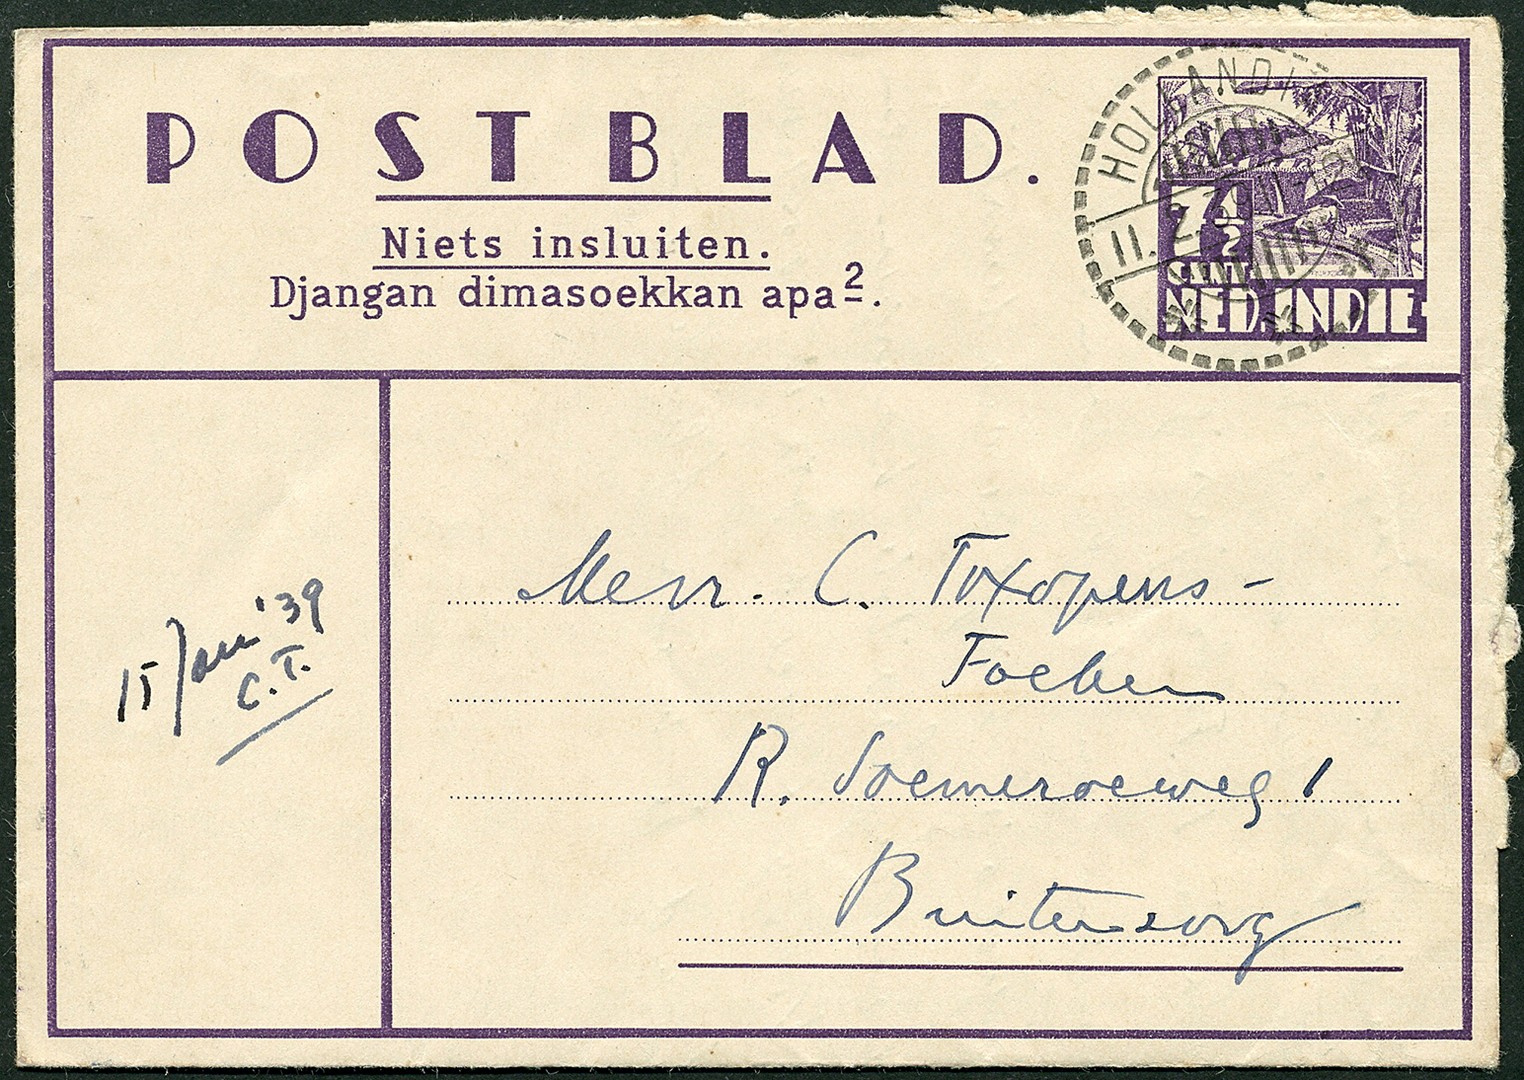 POSTBLAD.
Niets insluiten.
Djangan dimasoekkan apa2.
HOLLANDIA
11.2.39.11-12
7½
CENT
NED.INDIE
15 Jan '39
C.T.
Mevr. C. Toxopeus-
Foeken
R. Soemeroeweg 1
Buitenzorg